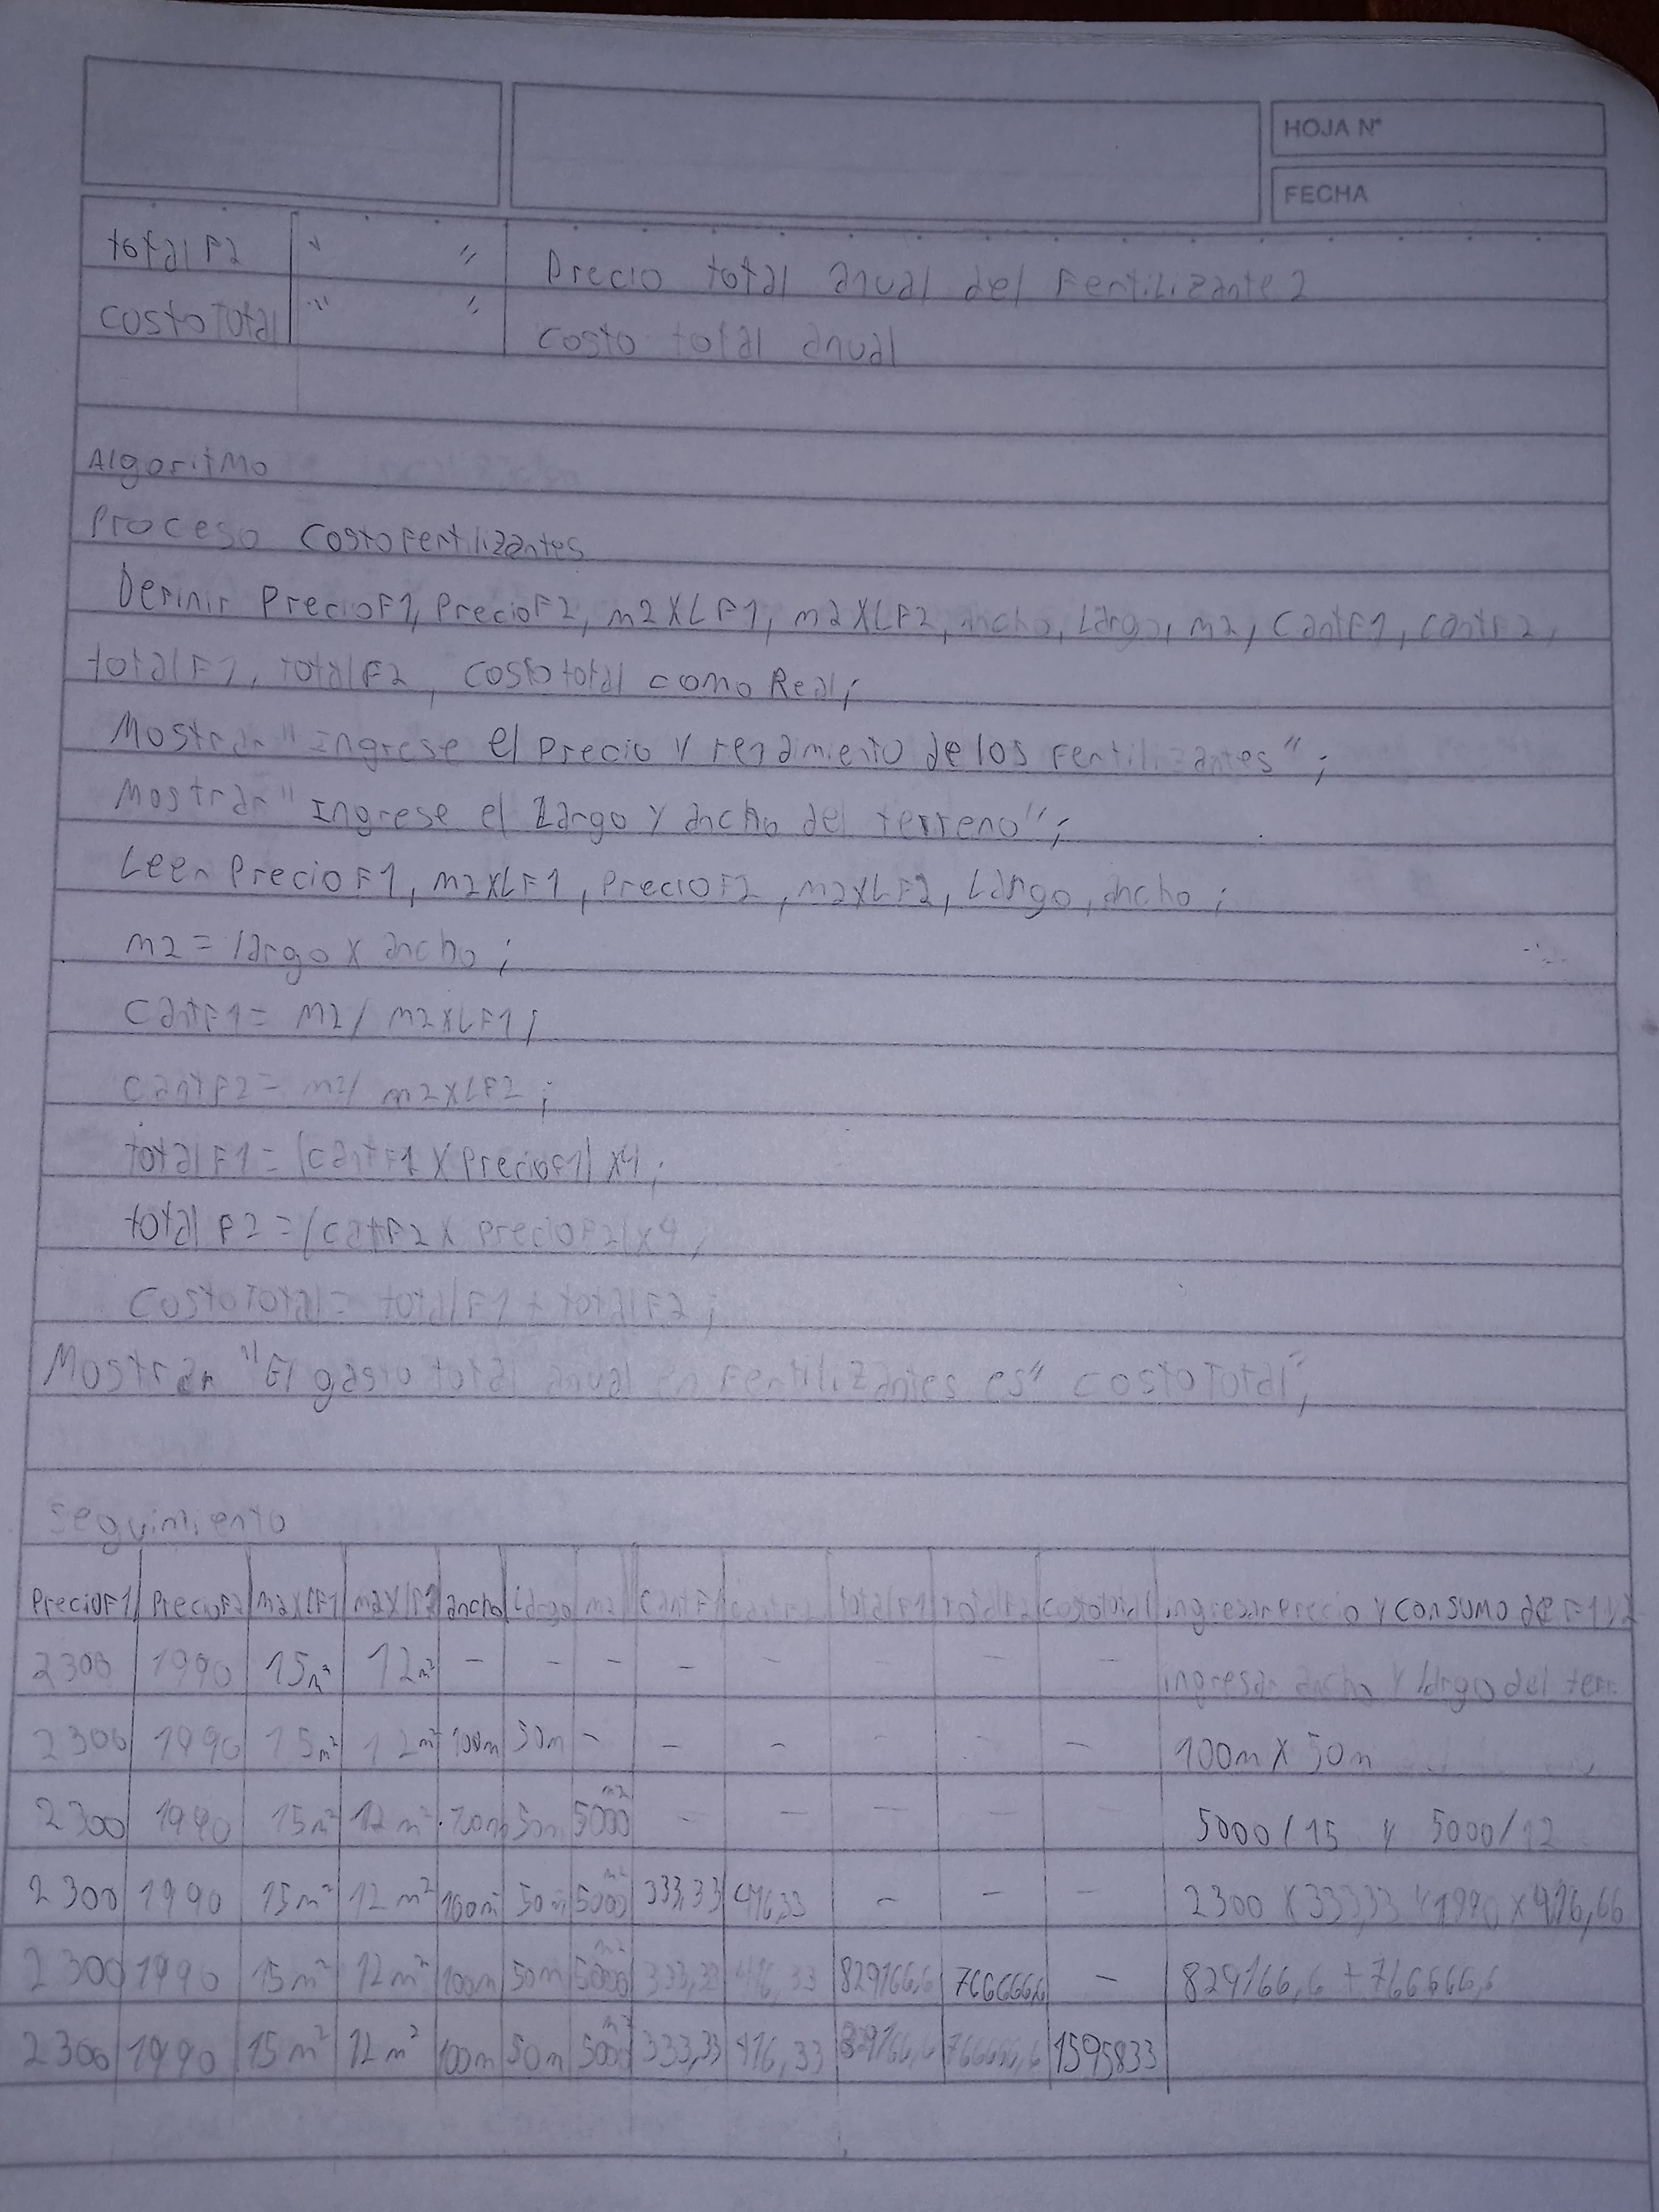 HOJA N°
FECHA
total F2 " " Precio total anual del Fertilizante 2
costo Total " " costo total anual
Algoritmo
Proceso CostoFertilizantes
Definir PrecioF1, PrecioF2, m2XLF1, m2XLF2, ancho, Largo, m2, CantF1, cantF2,
totalF1, totalF2, costo total como Real;
Mostrar "Ingrese el precio y rendimiento de los Fertilizantes";
Mostrar "Ingrese el Largo y ancho del terreno";
Leer PrecioF1, m2XLF1, PrecioF2, m2XLF2, Largo, ancho;
m2 = largo x ancho;
CantF1 = m2 / m2XLF1;
cantF2 = m2/ m2XLF2;
totalF1 = (cantF1 X PrecioF1) x4;
total F2 = (catF2 x precioF2) x4;
CostoTotal = totalF1 + totalF2;
Mostrar "El gasto total anual en Fertilizantes es" costoTotal;
seguimiento
PrecioF1 PrecioF2 m2XLF1 m2XLF2 ancho Largo m2 CantF1 cantF2 totalF1 totalF2 costototal ingresar precio y consumo de F1 y 2
2300 1990 15m² 12m² - - - - - - - - ingresar ancho y largo del terr.
2300 1990 15m² 12m² 100m 50m - - - - - - 100m X 50m
2300 1990 15m² 12m² 100m 50m 5000m2 - - - - - 5000/15 y 5000/12
2300 1990 15m² 12m² 100m 50m 5000m2 333,33 416,33 - - - 2300 X 333,33 y 1990 x 416,66
2300 1990 15m² 12m² 100m 50m 5000m2 333,33 416,33 829166,6 766666,6 - 829166,6 + 766666,6
2300 1990 15m² 12m² 100m 50m 5000m2 333,33 416,33 829166,6 766666,6 1595833